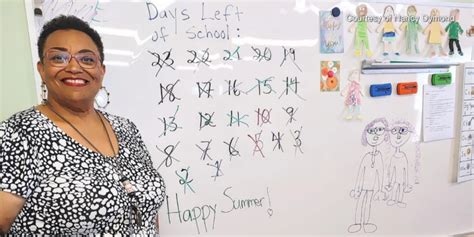 Courtesy of Nancy Dymond
Days Left
of School:
23 22 21 20 19
18 17 16 15 14
13 12 11 10 9
8 7 6 5 4 3
2 1
Happy Summer!